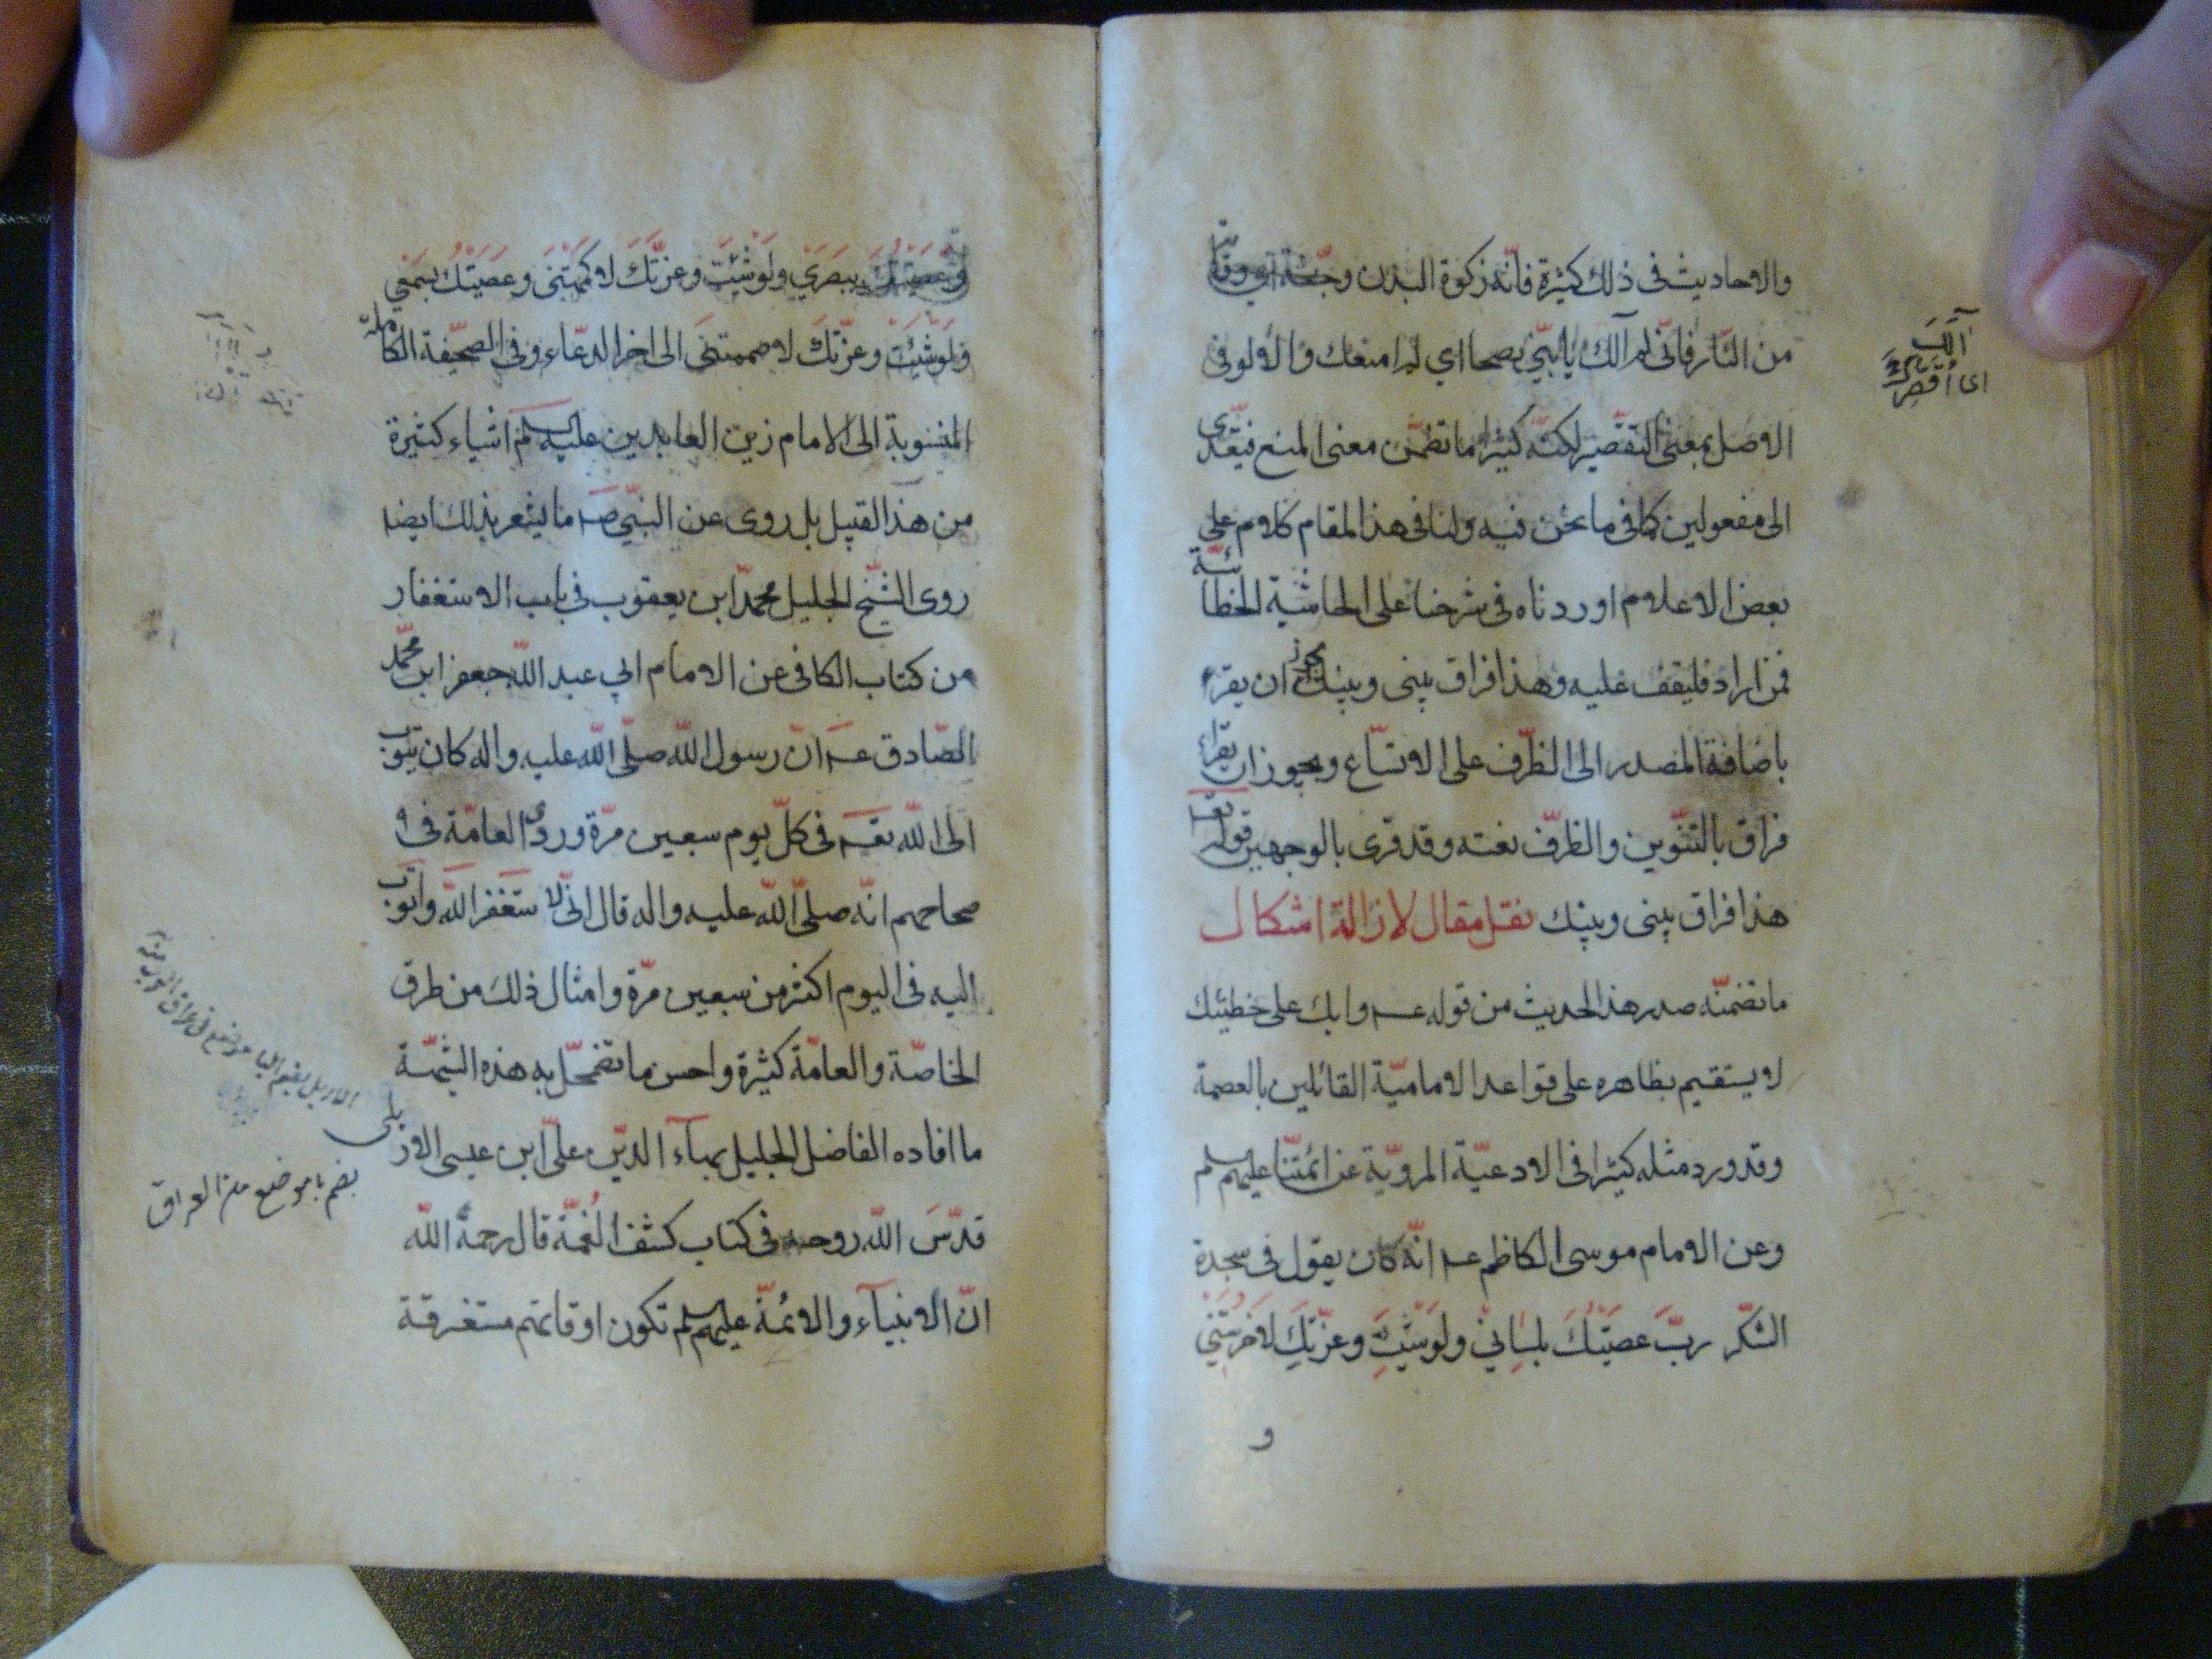 والاحاديث فى ذلك كثيرة فانّه زكوة البدن وجنّة اي وقاية
من النّار فانّى لم آلك يا بنىّ نصحا اي لم امنعك والالو فى
الاصل بمعنى التقصير لكنّه كثيرا ما تضمّن معنى المنع فيتعدّى
الى مفعولين كما فى ما نحن فيه ولنا فى هذا المقام كلام على
بعض الاعلام اوردناه فى شرحنا على الحاشية الخطائيّة
فمن اراد فليقف عليه وهذا فراق بينى وبينك يجوز ان يقرء
باضافة المصدر الى الظّرف على الاتسّاع ويجوز ان يقراء
فراق بالتنّوين والظرف نعته وقد قرى بالوجهين قوله تعـ
هذا فراق بينى وبينك نقل مقال لازالة اشكال
ما تضمنّه صدر هذا الحديث من قوله عـ وابك على خطيئتك
لا يستقيم بظاهره على قواعد الاماميّة القائلين بالعصمة
وقد ورد مثله كثيرا فى الادعيّة المرويّة عن ائمّتنا عليهم السلم
وعن الامام موسى الكاظم عـ انّه كان يقول فى سجدة
الشكّر ربّ عصيتك بلسانى ولو شئت وعزّتك لاخرستنى
و
آلك
اى اقصر
وعصيتك ببصري ولو شئت وعزتّك لاكمهتنى وعصيتك بسمعي
ولو شئت وعزّتك لاصممتنى الى اخر الدعّاء وفى الصحيّفة الكاملة
المنسوبة الى الامام زين العابدين عليه السلم اشياء كثيرة
من هذا القبيل بل روى عن النبّي صـ ما يشعر بذلك ايضا
روى الشيّخ الجليل محمدّ ابن يعقوب فى باب الاستغفار
من كتاب الكافى عن الامام ابي عبد اللّه جعفر ابن محمّد
الصّادق عـ انّ رسول اللّه صلّى اللّه عليه واله كان يتوب
الى اللّه تعـ فى كلّ يوم سبعين مرّة وروى العامّة فى
صحاحهم انّه صلىّ اللّه عليه واله قال انّى لاستغفر اللّه واتوب
اليه فى اليوم اكثر من سبعين مرّة وامثال ذلك من طرق
الخاصّة والعامّة كثيرة واحسن ما تضمحلّ به هذه الشبهّة
ما افاده الفاضل الجليل بهآء الديّن علىّ ابن عيسى الاربلى
قدّس اللّه روحه فى كتاب كشف الغمّة قال رحمه اللّه
انّ الانبيآء والائمّة عليهم السلم تكون اوقاتهم مستغرقة
بضم با موضع من العراق